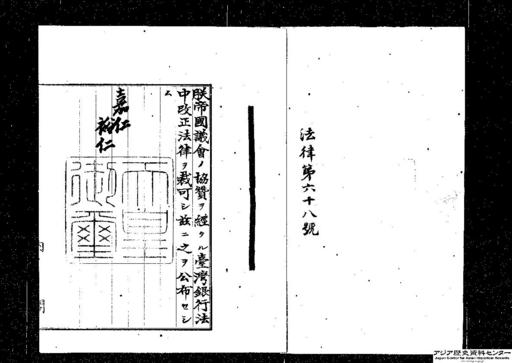 法律第六十八號
朕帝國議會ノ協贊ヲ經タル臺灣銀行法
中改正法律ヲ裁可シ玆ニ之ヲ公布セシ
ム
嘉仁
裕仁
天皇
御璽
アジア歴史資料センター
Japan Center for Asian Historical Records